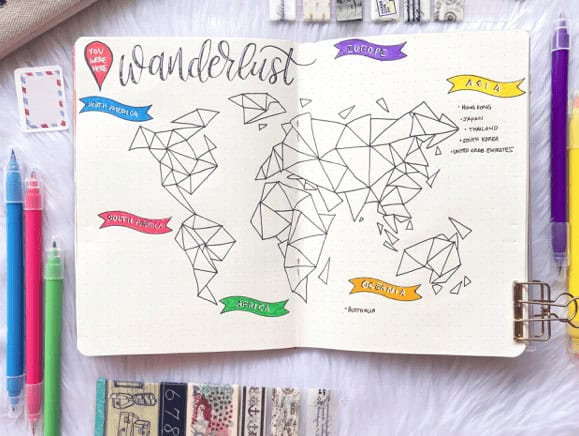 YOU
WERE
HERE
wanderlust
EUROPE
ASIA
NORTH AMERICA
• HONG KONG
• JAPAN
• THAILAND
• SOUTH KOREA
• UNITED ARAB EMIRATES
SOUTH AMERICA
OCEANIA
AFRICA
• AUSTRALIA
678